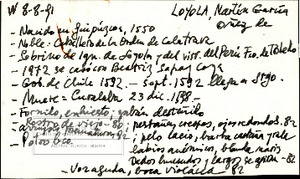 W 8-8-91 LOYOLA, Martín García
Oñez de
- Nacido en Guipúzcoa, 1550
- Noble. Caballero de la Orden de Calatrava
- Sobrino de Ign. de Loyola y del virr. del Perú Fco. de Toledo
- 1572 se casó con Beatriz Sapai Coya
- Gob. de Chile 1592. - Sept. 1592 llega a Stgo.
- Muere = Curalaba 23 dic. 1598.-
- Fornido, enhiesto; gabán desteñido
Rostro de vieja 80; pestañas crespas, ojos redondos. 82
pelo lacio, barba castaña y rala
labios anémicos, blanda, nariz
Dedos y largos 82
boca violácea 82